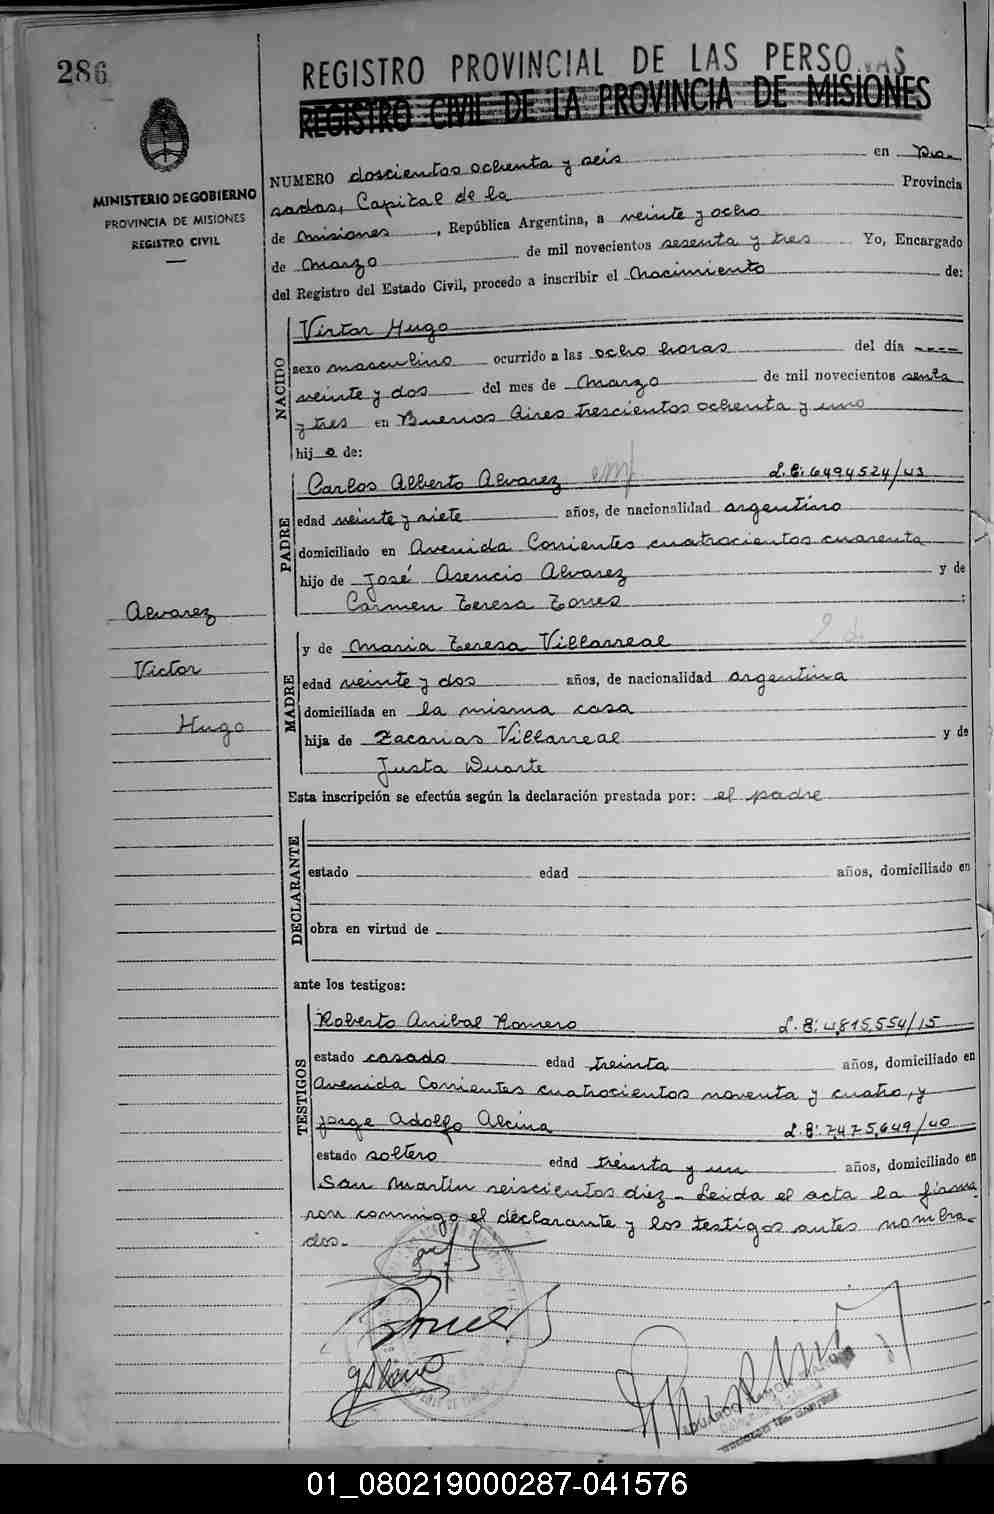 286
REGISTRO PROVINCIAL DE LAS PERSONAS
REGISTRO CIVIL DE LA PROVINCIA DE MISIONES
MINISTERIO DE GOBIERNO
PROVINCIA DE MISIONES
REGISTRO CIVIL
NUMERO doscientos ochenta y seis en Po-
sadas, Capital de la Provincia
de Misiones, República Argentina, a veinte y ocho
de Marzo de mil novecientos sesenta y tres Yo, Encargado
del Registro del Estado Civil, procedo a inscribir el Nacimiento de:
NACIDO
Víctor Hugo
sexo masculino ocurrido a las ocho horas del día ----
veinte y dos del mes de Marzo de mil novecientos senta
y tres en Buenos Aires trescientos ochenta y uno
hij o de:
PADRE
Carlos Alberto Alvarez L.E: 6494524/43
edad veinte y siete años, de nacionalidad argentino
domiciliado en Avenida Corrientes cuatrocientos cuarenta
hijo de José Asencio Alvarez y de
Carmen Teresa Torres ;
Alvarez
Victor
Hugo
MADRE
y de Maria Teresa Villarreal
edad veinte y dos años, de nacionalidad argentina
domiciliada en la misma casa
hija de Zacarias Villarreal y de
Justa Duarte
Esta inscripción se efectúa según la declaración prestada por: el padre
DECLARANTE
estado edad años, domiciliado en
obra en virtud de
ante los testigos:
TESTIGOS
Roberto Anibal Romero L.E: 4,815,554/15
estado casado edad treinta años, domiciliado en
Avenida Corrientes cuatrocientos noventa y cuatro, y
Jorge Adolfo Alcina L.E: 7,475,649/40
estado soltero edad treinta y un años, domiciliado en
San Martín seiscientos diez - Leida el acta la firma-
ron conmigo el declarante y los testigos antes nombra-
dos.-
01_080219000287-041576